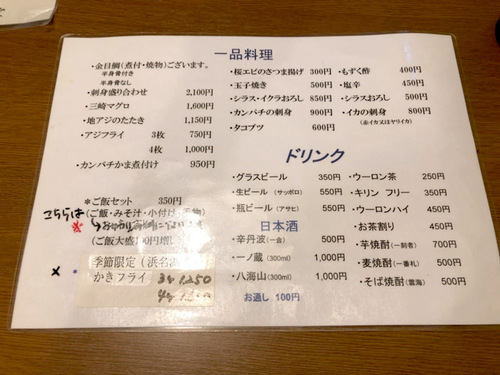 一品料理
・金目鯛(煮付・焼物)ございます。
半身骨付き
半身骨なし
・刺身盛り合わせ 2,100円
・三崎マグロ 1,600円
・地アジのたたき 1,150円
・アジフライ 3枚 750円
4枚 1,000円
・カンパチかま煮付け 950円
・桜エビのさつま揚げ 300円
・玉子焼き 500円
・シラス・イクラおろし 850円
・カンパチの刺身 900円
・タコブツ 600円
・もずく酢 400円
・塩辛 450円
・シラスおろし 500円
・イカの刺身 800円
(赤イカ又はヤリイカ)
*ご飯セット 350円
こちらは(ご飯・みそ汁・小付け・
(ご飯大盛100円増し
季節限定(浜名
かきフライ 3ケ 1,250
4ケ
×
ドリンク
・グラスビール 350円
・生ビール (サッポロ) 550円
・瓶ビール (アサヒ) 550円
日本酒
・辛丹波(一合) 500円
・一ノ蔵(300ml) 1,000円
・八海山(300ml) 1,000円
お通し 100円
・ウーロン茶 250円
・キリン フリー 350円
・ウーロンハイ 450円
・お茶割り 450円
・芋焼酎(一刻者) 700円
・麦焼酎(一番札) 500円
・そば焼酎(雲海) 500円